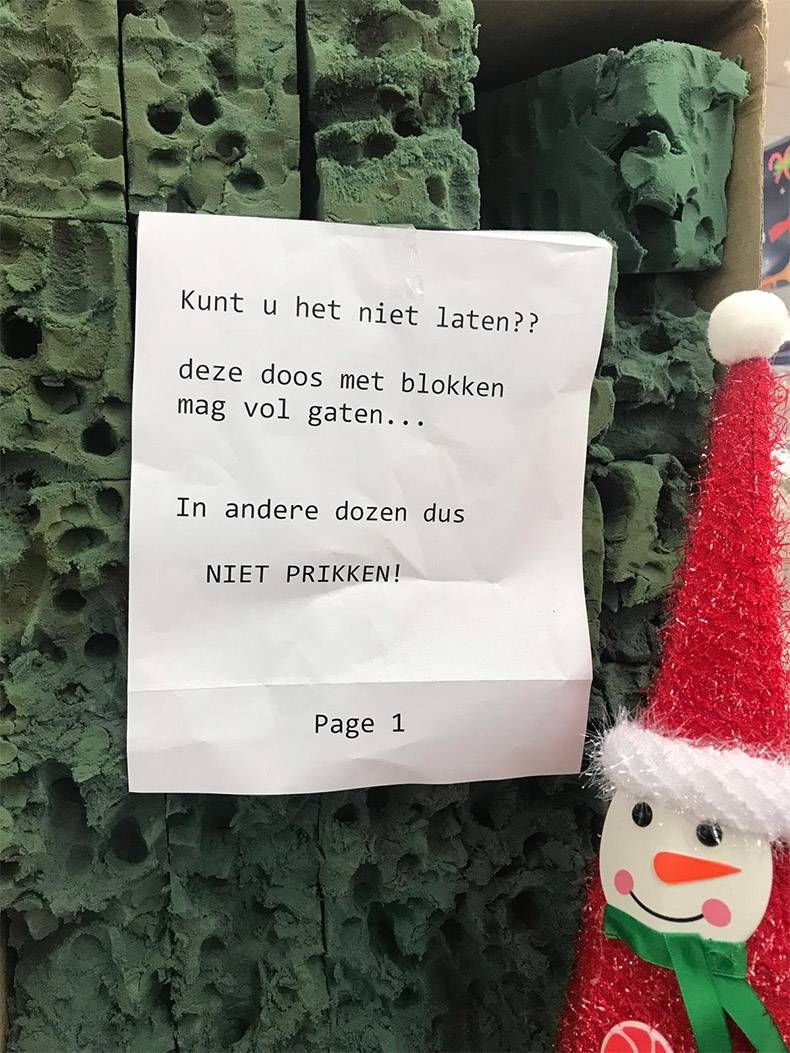 Kunt u het niet laten??
deze doos met blokken
mag vol gaten...
In andere dozen dus
NIET PRIKKEN!
Page 1